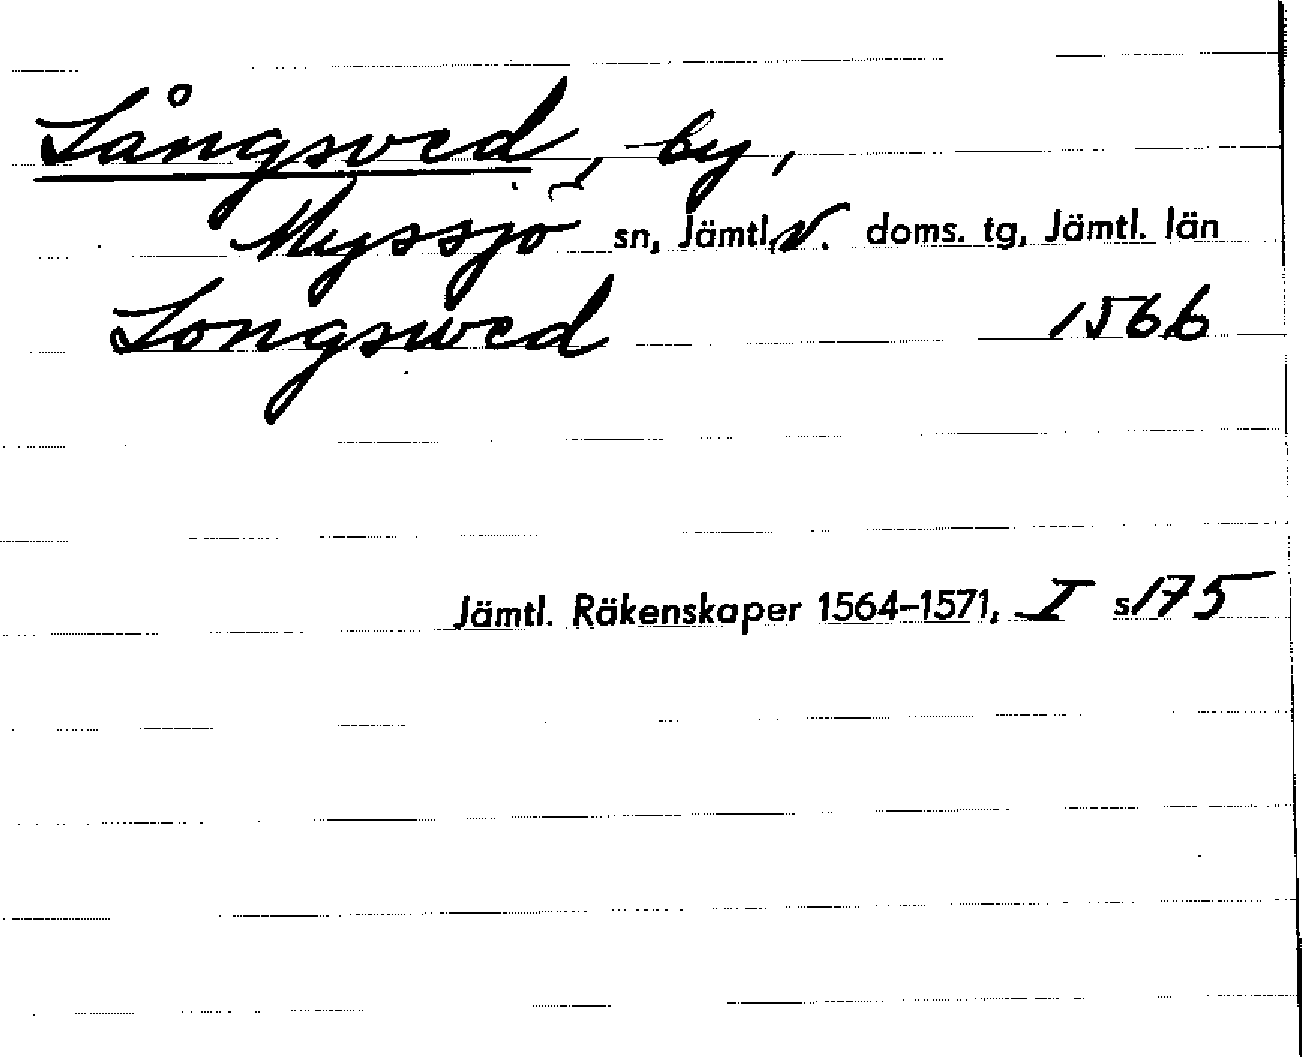 Långsved, by,
Myssjö sn, Jämtl. v. doms. tg, Jämtl. län
Longswed 1566
Jämtl. Räkenskaper 1564-1571, I s 175